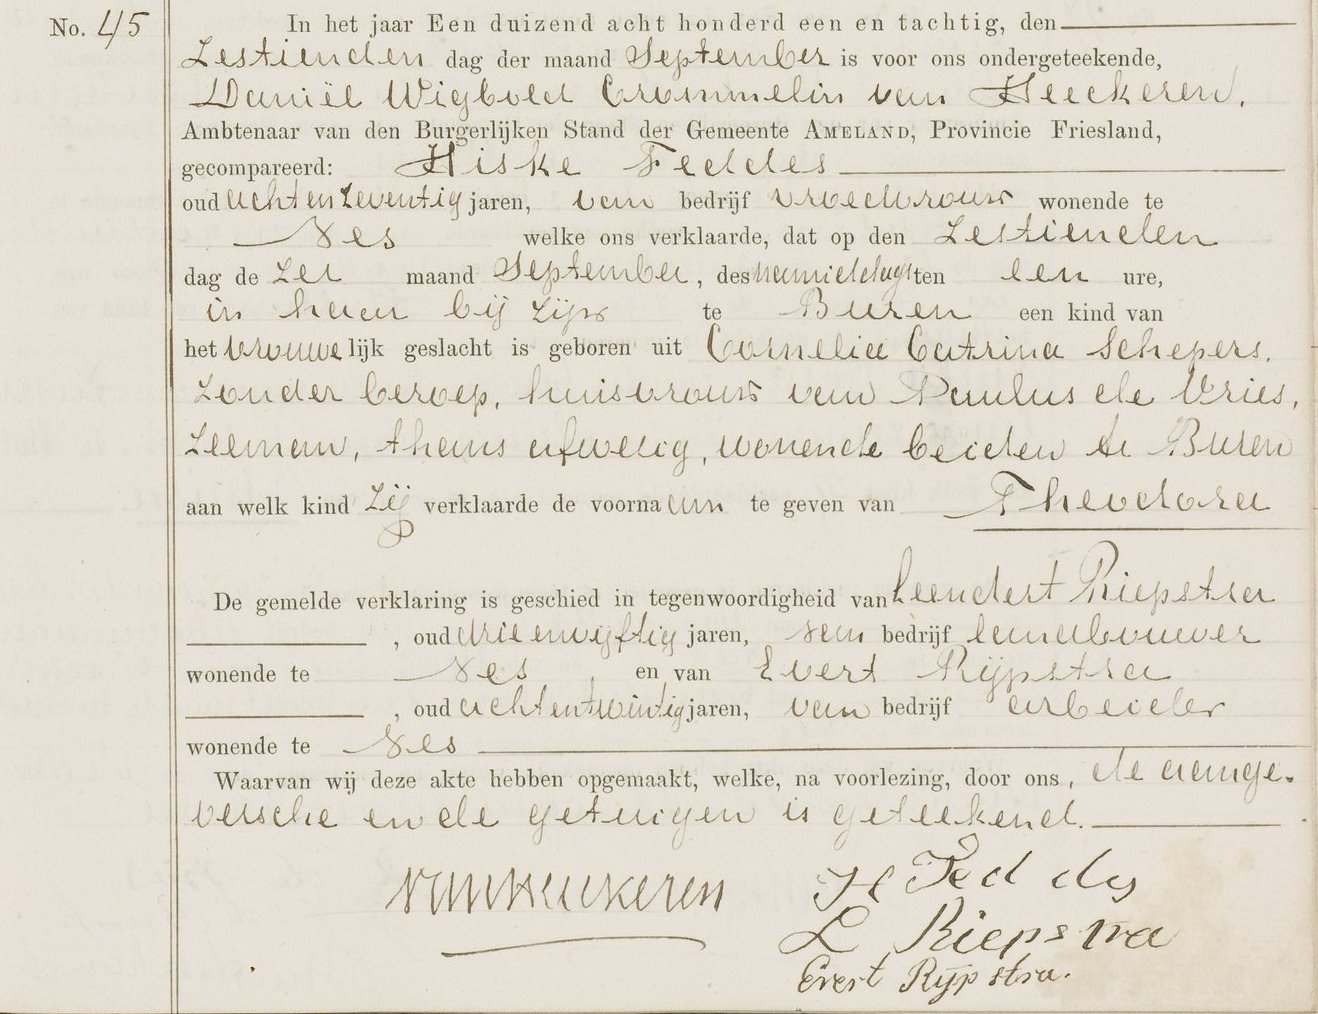 No. 45
In het jaar Een duizend acht honderd een en tachtig, den
Zestienden dag der maand September is voor ons ondergeteekende,
Daniël Wigbold Crommelin van Heeckeren,
Ambtenaar van den Burgerlijken Stand der Gemeente AMELAND, Provincie Friesland,
gecompareerd: Hiske Feddes
oud achtenzeventig jaren, van bedrijf vroedvrouw wonende te
Nes welke ons verklaarde, dat op den Zestienden
dag de zer maand September, des namiddags ten een ure,
in haar bij zijn te Buren een kind van
het vrouwelijk geslacht is geboren uit Cornelia Catrina Schepers,
zonder beroep, huisvrouw van Paulus de Vries,
zeeman, thans afwezig, wonende beiden te Buren
aan welk kind zij verklaarde de voornaam te geven van Theodora
De gemelde verklaring is geschied in tegenwoordigheid van Leendert Riepstra
, oud drieenvijftig jaren, van bedrijf landbouwer
wonende te Nes, en van Evert Rijpstra
, oud achtentwintig jaren, van bedrijf arbeider
wonende te Nes
Waarvan wij deze akte hebben opgemaakt, welke, na voorlezing, door ons, de aange-
versche en de getuigen is geteekend.
van Heeckeren
H Feddes
L Riepstra
Evert Rijpstra.